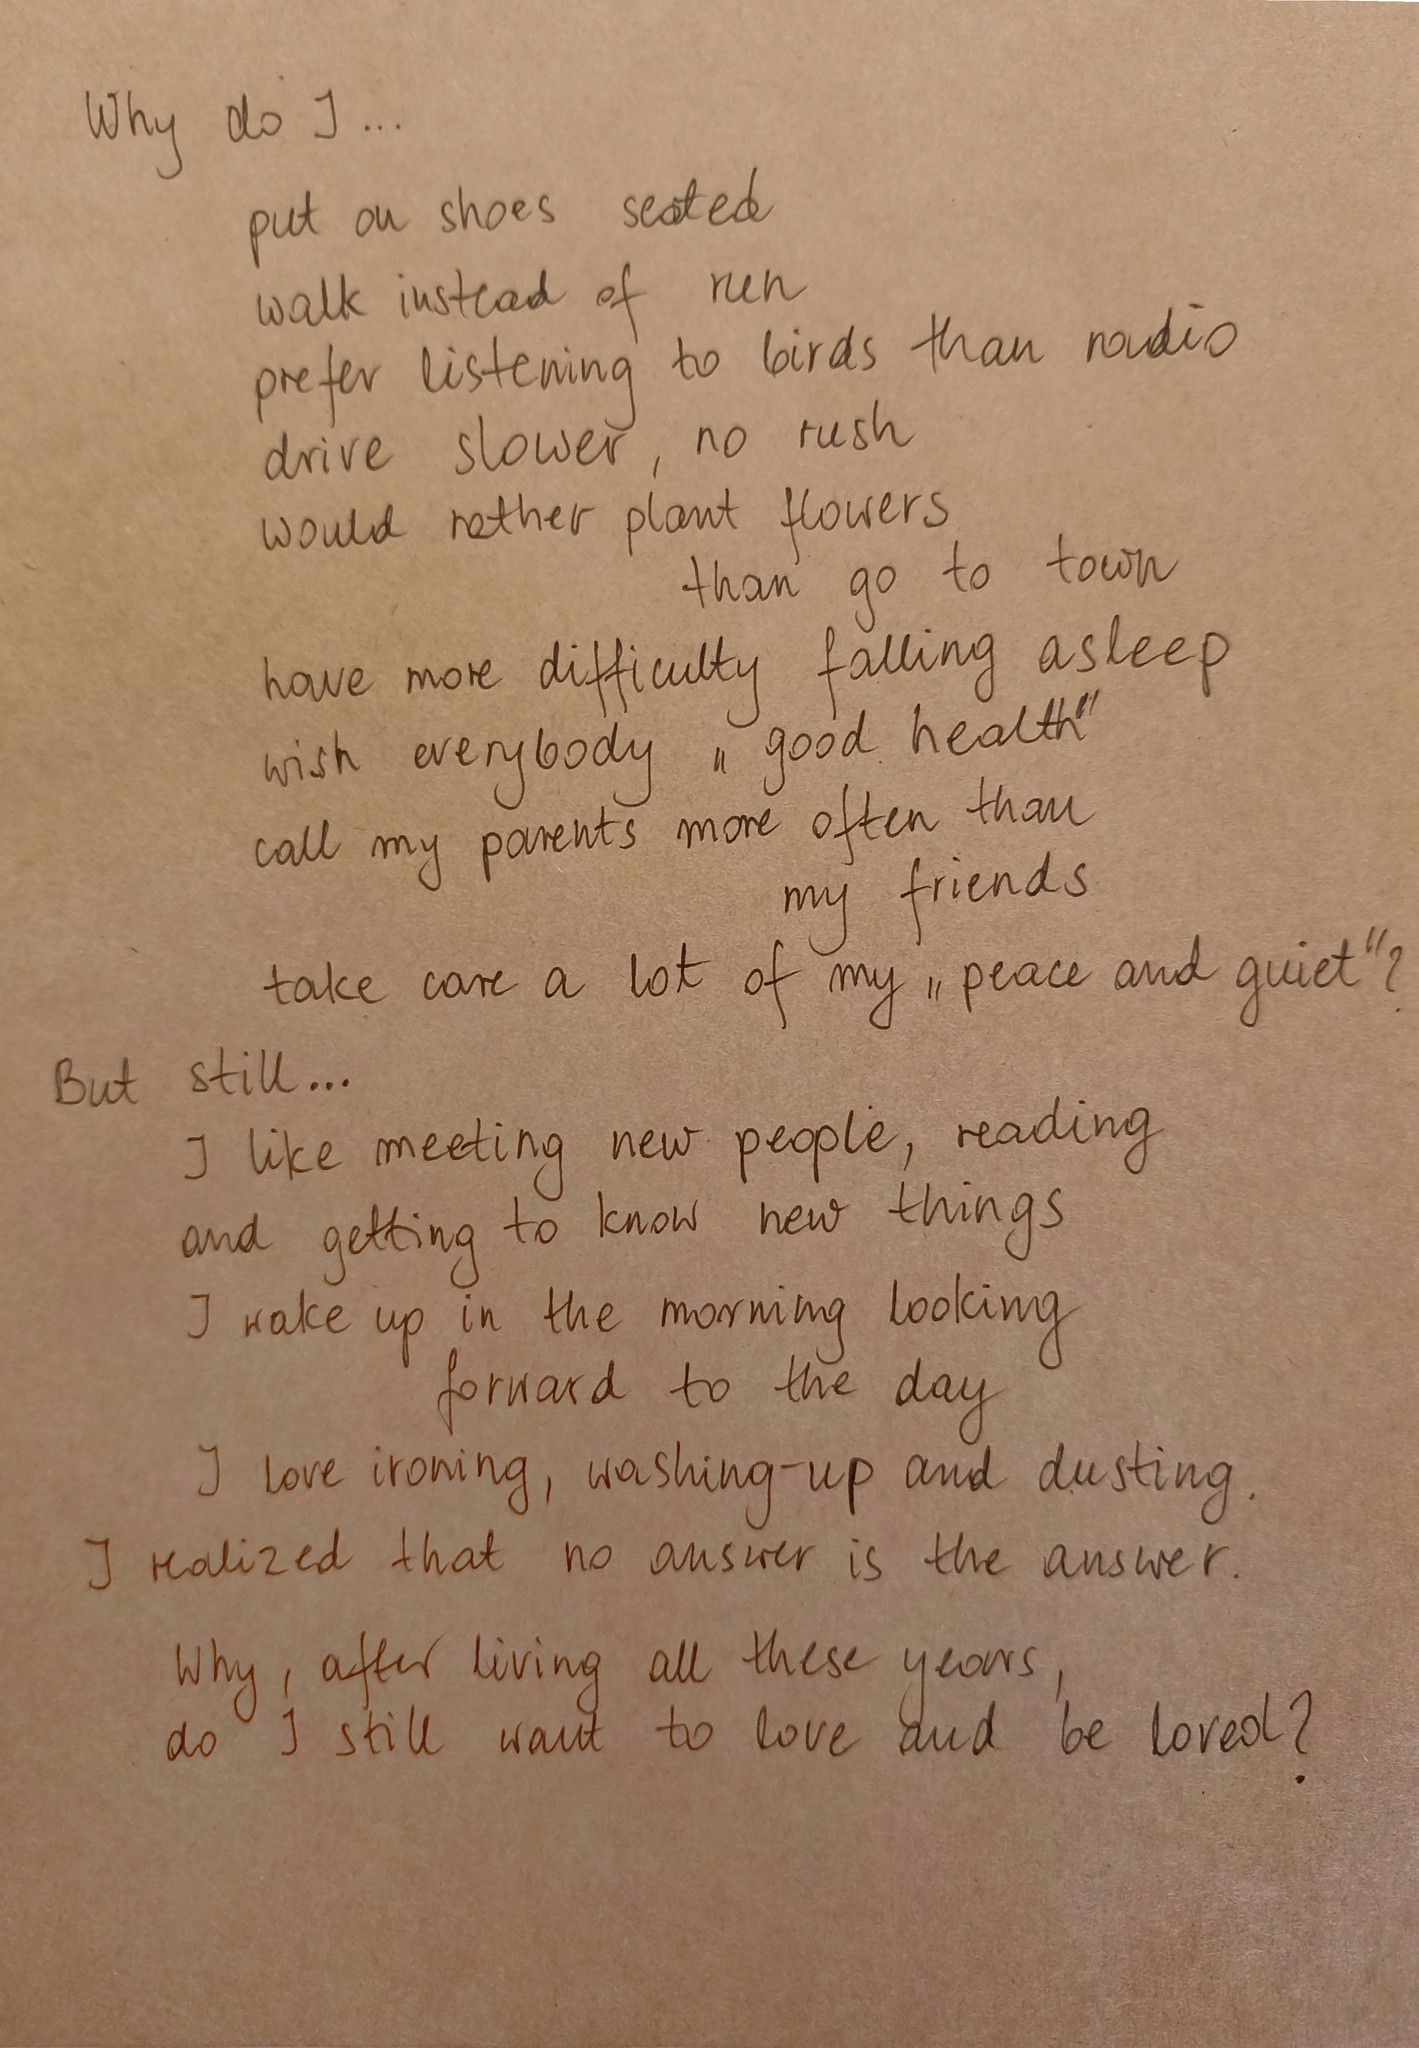 Why do I...
put on shoes seated
walk instead of run
prefer listening to birds than radio
drive slower, no rush
would rather plant flowers
than go to town
have more difficulty falling asleep
wish everybody „good health"
call my parents more often than
my friends
take care a lot of my „peace and quiet"?
But still...
I like meeting new people, reading
and getting to know new things
I wake up in the morning looking
forward to the day
I love ironing, washing-up and dusting.
I realized that no answer is the answer.
Why, after living all these years,
do I still want to love and be loved?